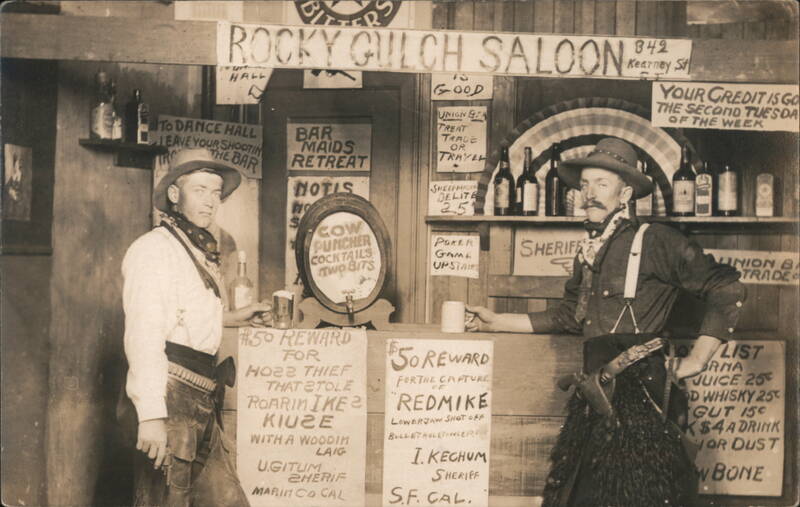 BITTERS
ROCKY GULCH SALOON 342
Kearney St
S.F.
HALL
IS
GOOD
YOUR CREDIT IS GO
THE SECOND TUESDA
OF THE WEEK
TO DANCE HALL
LEAVE YOUR SHOOTIN
THE BAR
BAR
MAIDS
RETREAT
UNION BAR
TREAT
TRADE
OR
TRAVEL
NOTIS
COW
PUNCHER
COCKTAILS
TWO BITS
DELITE
25
POKER
GAME
UPSTAIRS
SHERIFF
UNION BA
TRADE O
$50 REWARD
FOR
HOSS THIEF
THAT STOLE
ROARIN IKES
KIUSE
WITH A WOODIN
LAIG
U.GITUM
SHERIF
MARIN CO CAL
$50 REWARD
FOR THE CAPTURE
OF
"REDMIKE
LOWER JAW SHOT OFF
I. KECHUM
SHERIFF
S.F. CAL.
LIST
JUICE 25¢
WHISKY 25¢
GUT 15¢
$4 A DRINK
OR DUST
BONE